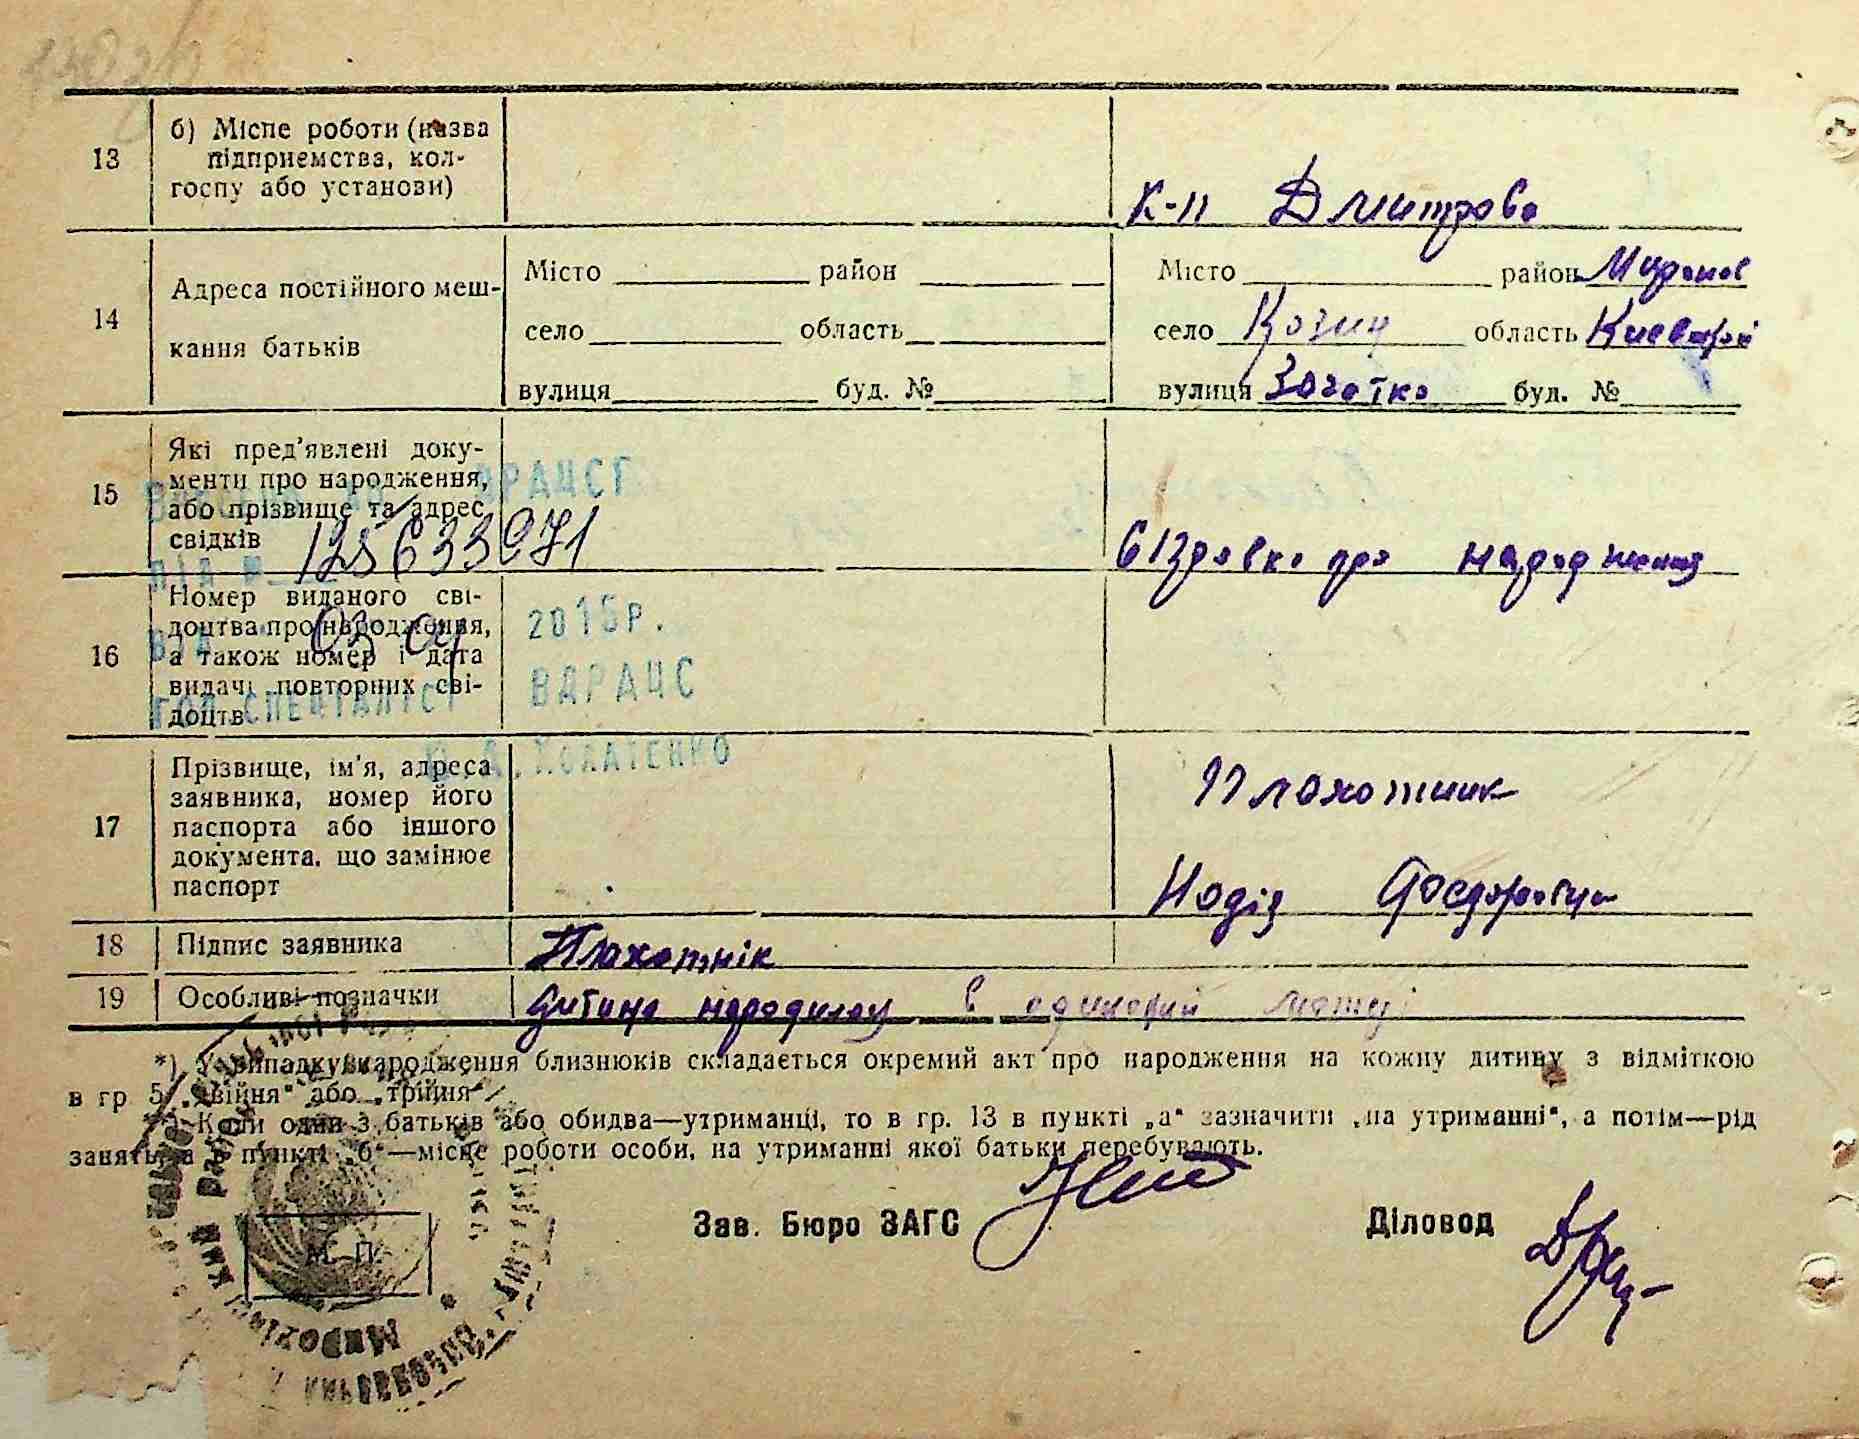 13 б) Місце роботи (назва
підприємства, кол-
госпу або установи)
к-п Дмитрова
14 Адреса постійного меш-
кання батьків
Місто район
село область
вулиця буд. №
Місто район Миронов
село Козин область Киевской
вулиця буд. №
15 Які пред'явлені доку-
менти про народження,
або прізвище та адрес
свідків
ВРАЦСГ
125633971
про народження
16 Номер виданого сві-
доцтва про народження,
а також номер і дата
видачі повторних сві-
доцтв
03 04 2015р.
ГОЛ.СПЕЦІАЛІСТ ВДРАЦС
17 Прізвище, ім'я, адреса
заявника, номер його
паспорта або іншого
документа, що замінює
паспорт
Плахотник
Надія Федоровна
18 Підпис заявника Плахотнік
19 Особливі позначки дитина народилась в одинокій матері
*) У випадку народження близнюків складається окремий акт про народження на кожну дитину з відміткою
в гр 5 „двійня" або „трійня"
Коли один з батьків або обидва—утриманці, то в гр. 13 в пункті „а" зазначити „на утриманні", а потім—рід
занять, а в пункті „б"—місце роботи особи, на утриманні якої батьки перебувають.
Зав. Бюро ЗАГС Діловод
М. П.